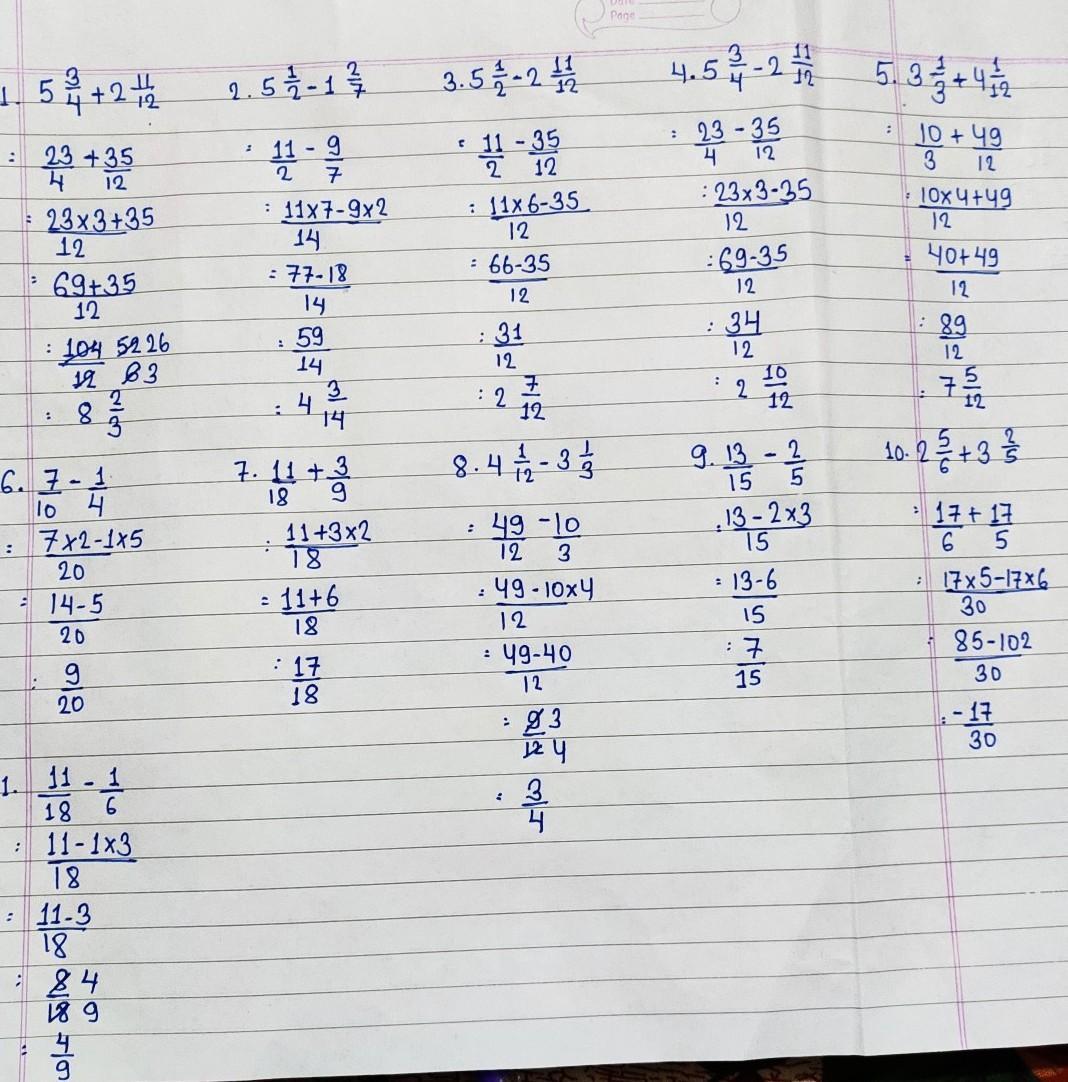 Date
Page
1. 5 3/4 + 2 11/12
: 23/4 + 35/12
: 23×3+35/12
: 69+35/12
: 104/12 52/6 26/3
: 8 2/3
2. 5 1/2 - 1 2/7
: 11/2 - 9/7
: 11×7-9×2/14
: 77-18/14
: 59/14
: 4 3/14
3. 5 1/2 - 2 11/12
: 11/2 - 35/12
: 11×6-35/12
: 66-35/12
: 31/12
: 2 7/12
4. 5 3/4 - 2 11/12
: 23/4 - 35/12
: 23×3-35/12
: 69-35/12
: 34/12
: 2 10/12
5. 3 1/3 + 4 1/12
: 10/3 + 49/12
: 10×4+49/12
= 40+49/12
: 89/12
: 7 5/12
6. 7/10 - 1/4
: 7×2-1×5/20
= 14-5/20
: 9/20
7. 11/18 + 3/9
: 11+3×2/18
= 11+6/18
: 17/18
8. 4 1/12 - 3 1/3
: 49/12 - 10/3
: 49-10×4/12
: 49-40/12
: 9/12 3/4
: 3/4
9. 13/15 - 2/5
: 13-2×3/15
= 13-6/15
: 7/15
10. 2 5/6 + 3 2/5
: 17/6 + 17/5
: 17×5-17×6/30
: 85-102/30
: -17/30
1. 11/18 - 1/6
: 11-1×3/18
: 11-3/18
: 8/18 4/9
: 4/9